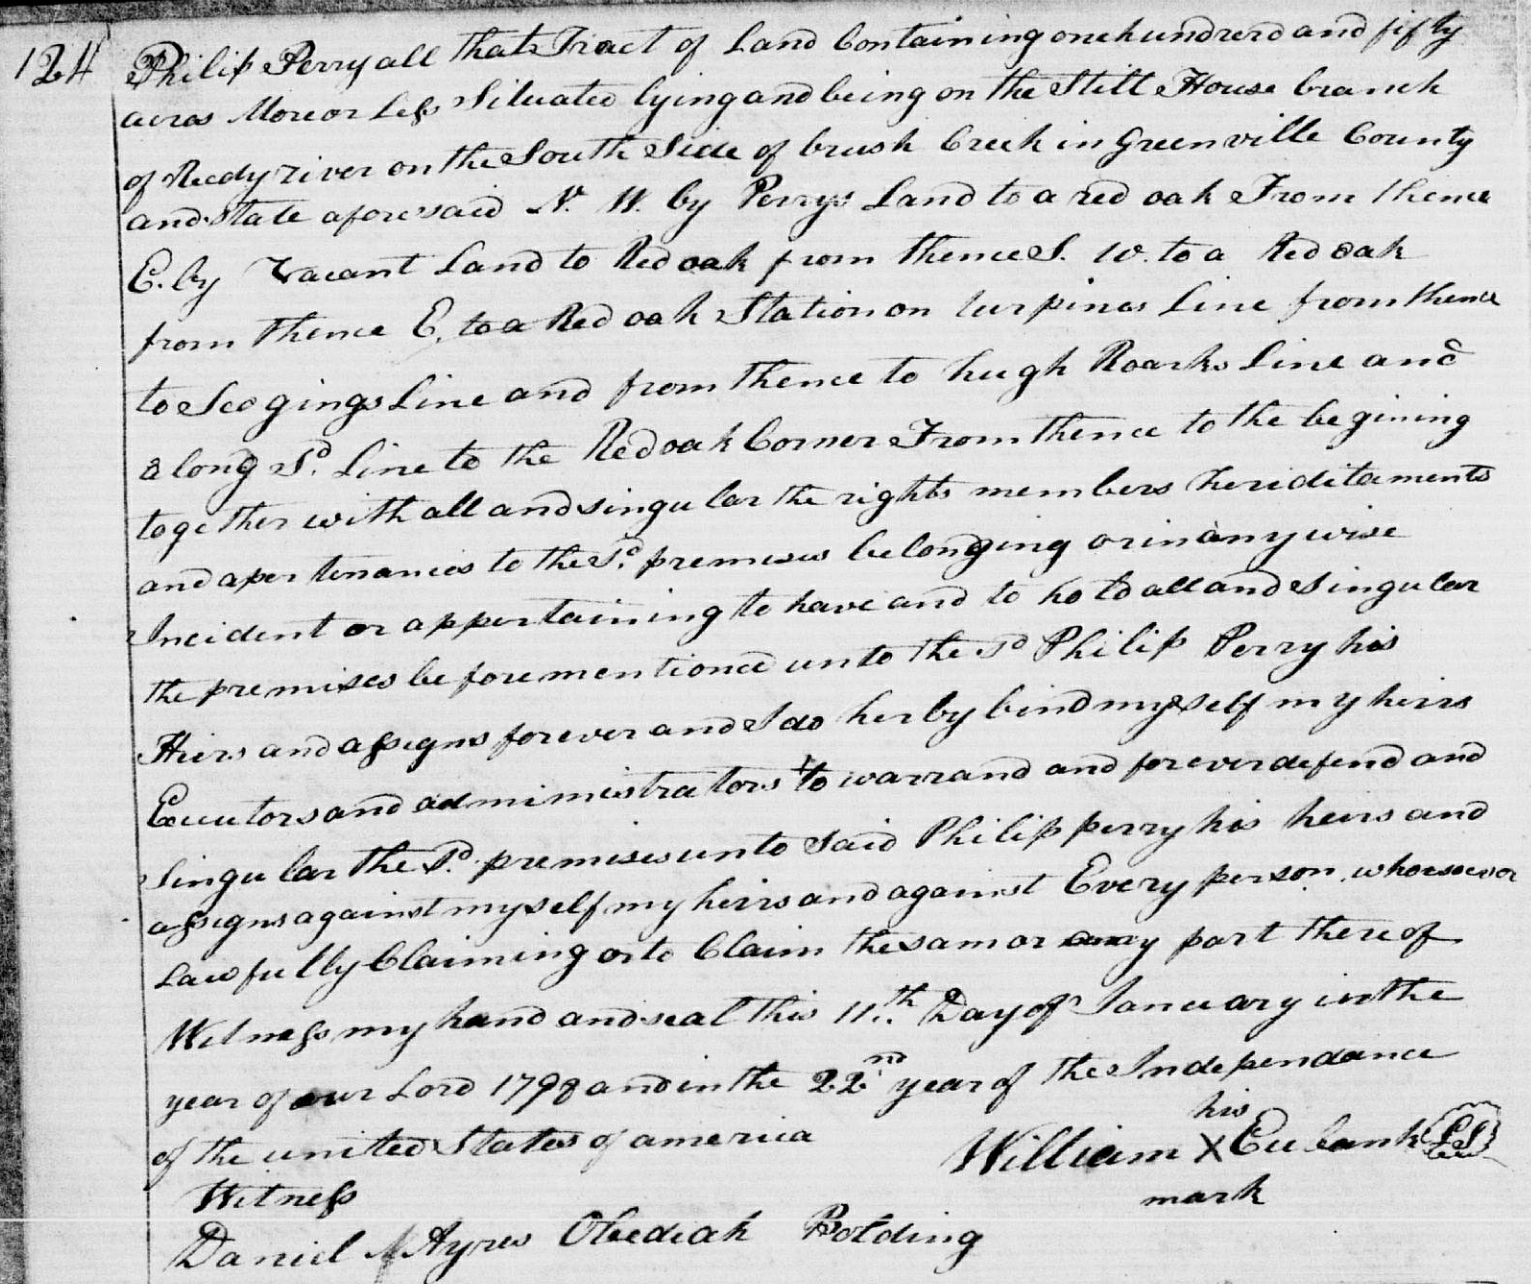 124
Philip Perry all that Tract of Land Containing one hundrerd and fifty
acras More or Less Situated lying and being on the Still House branch
of Reedy river on the South Side of brush Creek in Greenville County
and State aforesaid N. W. by Perrys Land to a red oak From thence
E. by Vacant Land to Red oak from thence S. W. to a Red oak
from thence E. to a Red oak Station on turpines Line from thence
to Scogings Line and from thence to hugh Roarks Line and
along Sd. Line to the Red oak Corner From thence to the begining
together with all and singular the rights members heriditaments
and apertenances to the Sd. premises belonging or in any wise
Incident or appertaining to have and to hold all and singular
the premises before mentioned unto the Sd Philip Perry his
Heirs and assigns forever and I do herby bind myself my heirs
Executors and administrators to warrand and forever defend and
Singular the Sd. premises unto said Philip perry his heirs and
assigns against myself my heirs and against Every person whoesoever
Lawfully Claiming or to Claim the sam or any part there of
Witness my hand and seal this 11th. Day of January in the
year of our Lord 1798 and in the 22nd year of the Independance
of the united States of america
his
William X Eubank LS
mark
Witness
Daniel Ayres Obediah Bolding